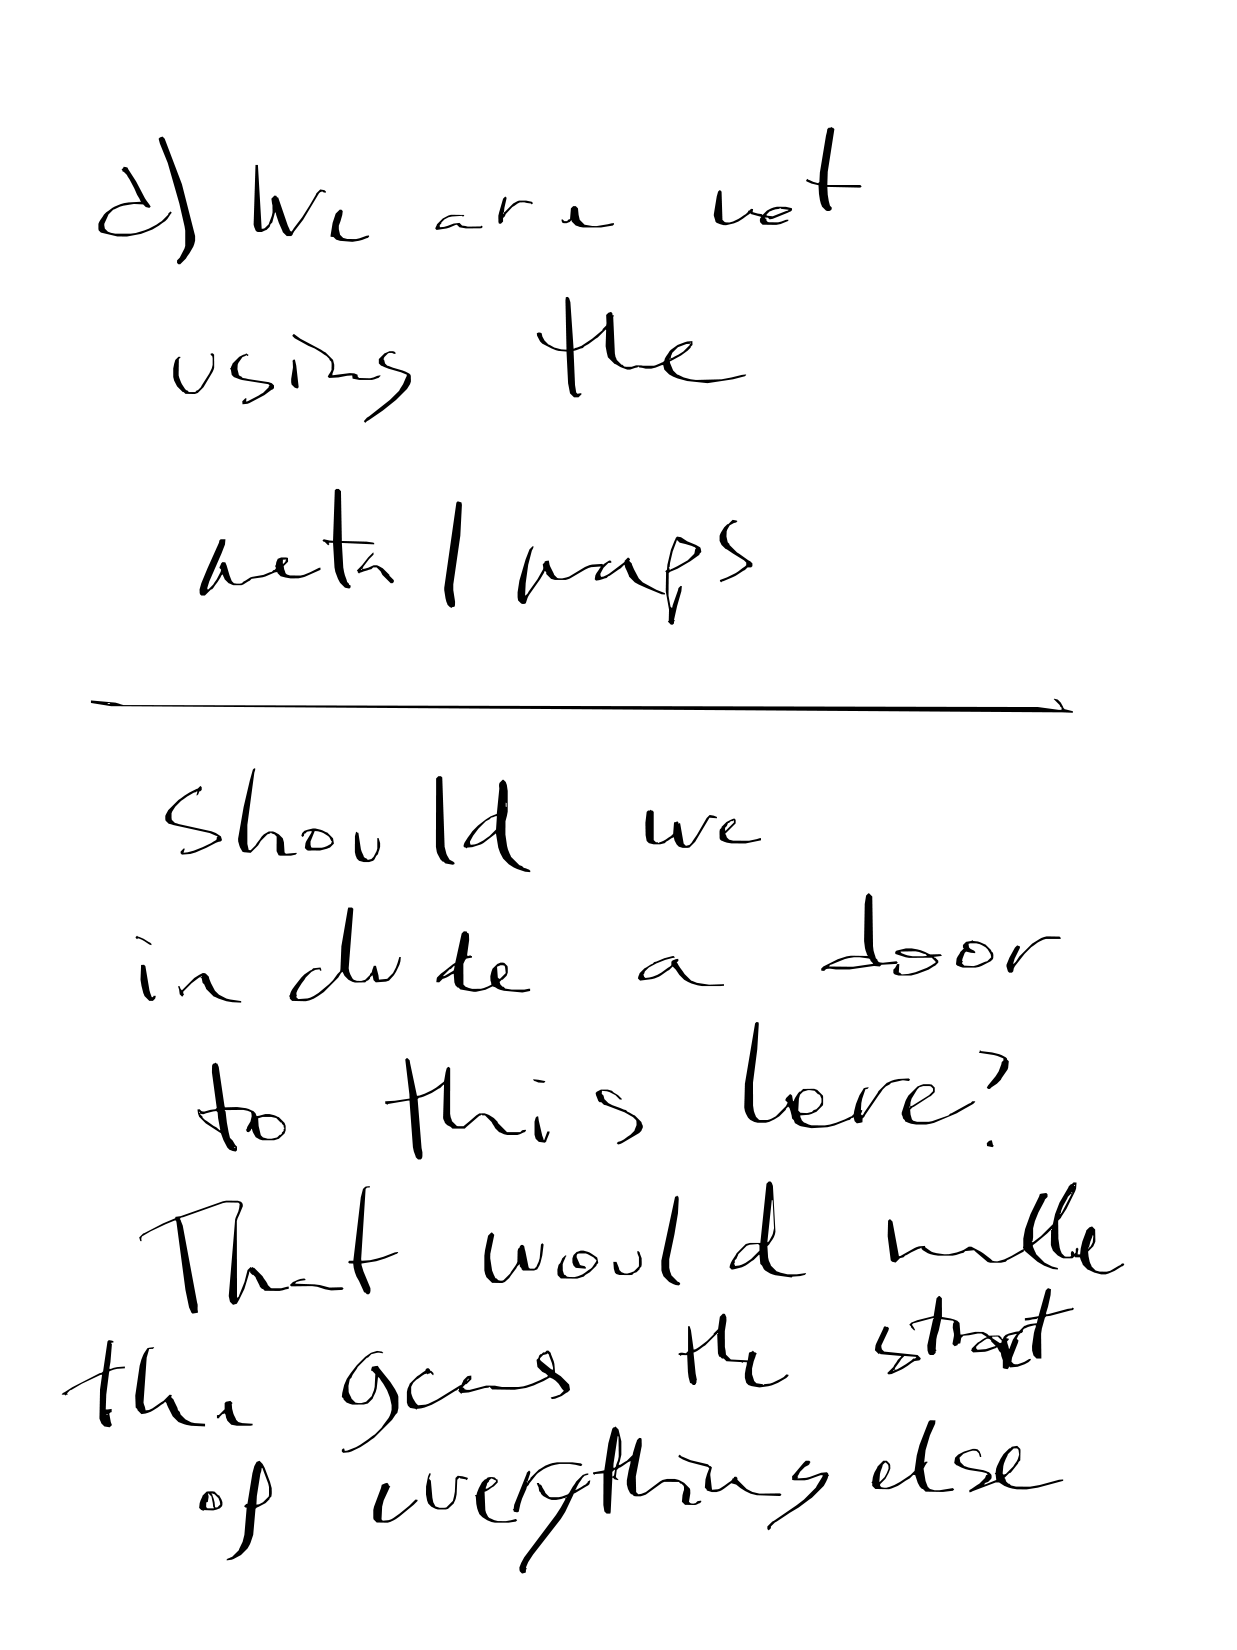 d) We are not
using the
metal maps
Should we
include a door
to this here?
That would make
the the start
of everything else